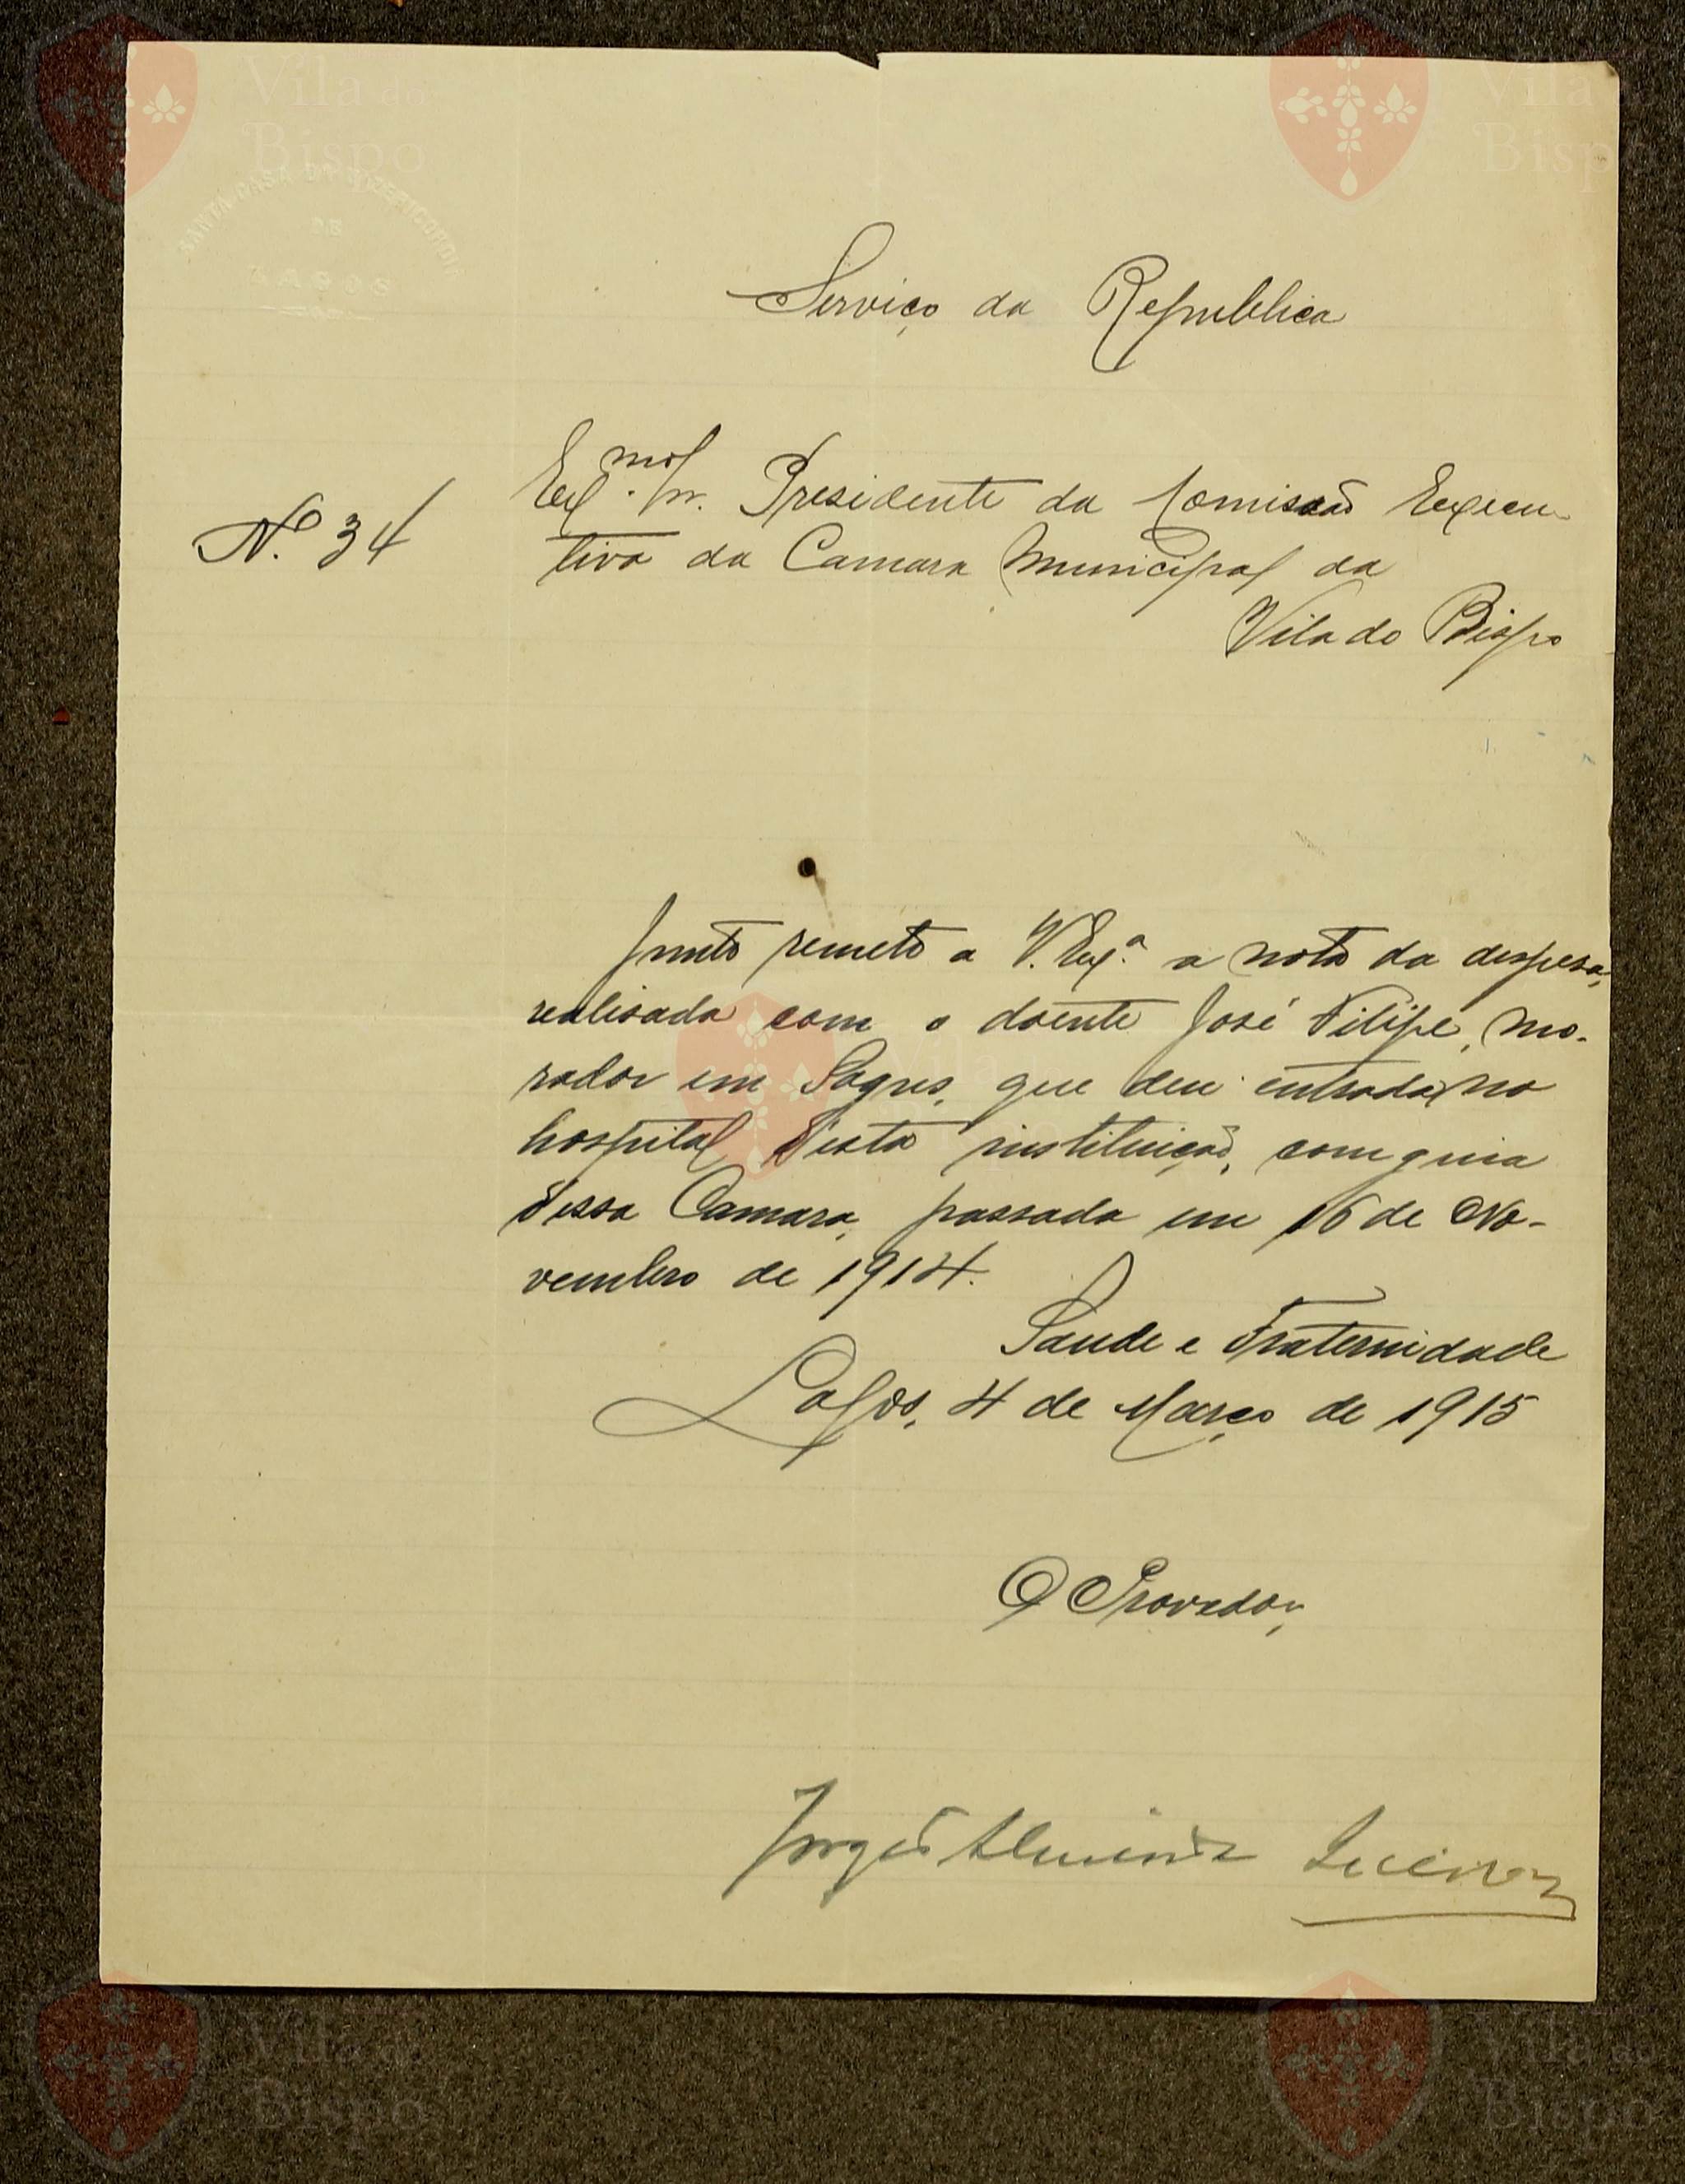 SANTA CASA DA MISERICORDIA
DE
LAGOS
Serviço da Republica
Nº 34
Exmo Sr. Presidente da Comissão Execu-
tiva da Camara Municipal da
Vila do Bispo
Junto remeto a V. Exª a nota da despesa,
realisada com o doente José Filipe, mo-
rador em Sagres, que deu entrada no
hospital d'esta instituição, com guia
d'essa Camara, passada em 16 de No-
vembro de 1914.
Saude e Fraternidade
Lagos, 4 de Março de 1915
O Provedor,
Vila do
Bispo